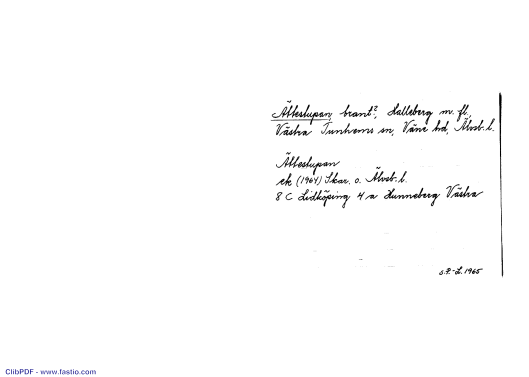 Ättestupan, brant?, Halleberg m. fl.,
Västra Tunhems sn, Väne hd, Älvsb. l.
Ättestupan
ek (1964) Skar. o. Älvsb. l.
8 C Lidköping 4 a Hunneberg Västra
S.P.-L. 1965
ClibPDF - www.fastio.com